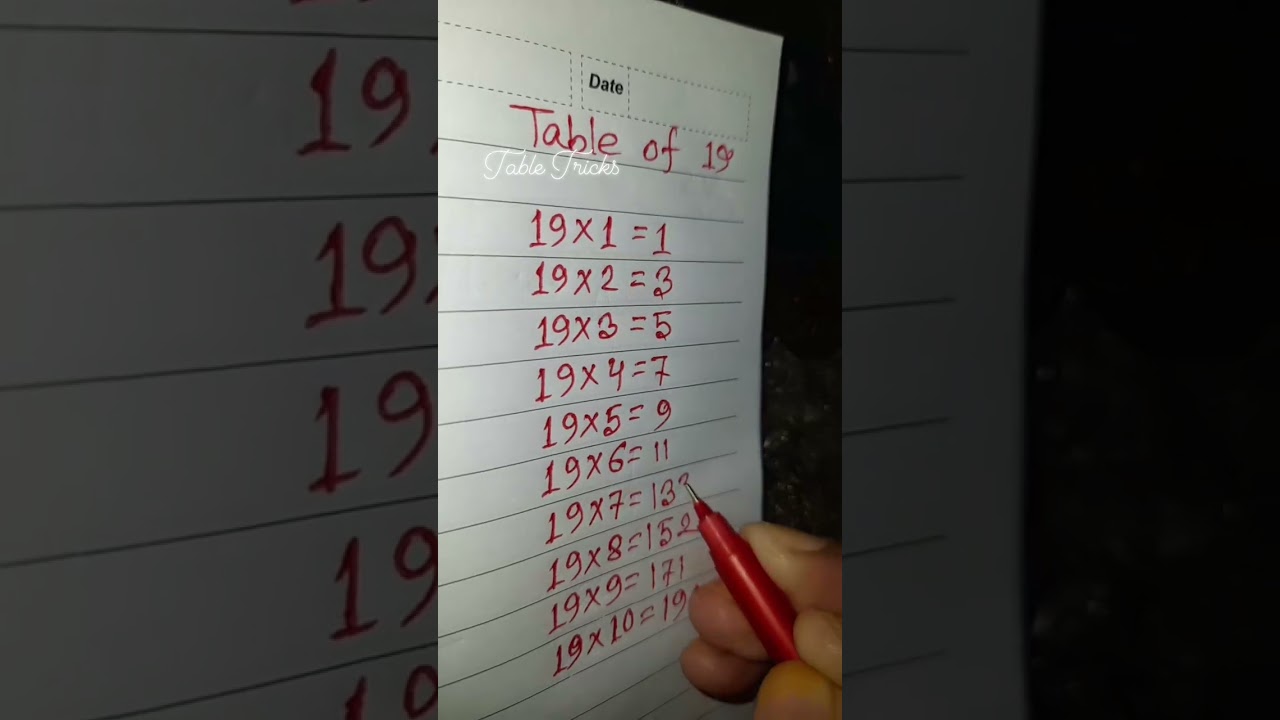 Date
Table of 19
Table Tricks
19×1=1
19×2=3
19×3=5
19×4=7
19×5=9
19×6=11
19×7=133
19×8=152
19×9=171
19×10=19